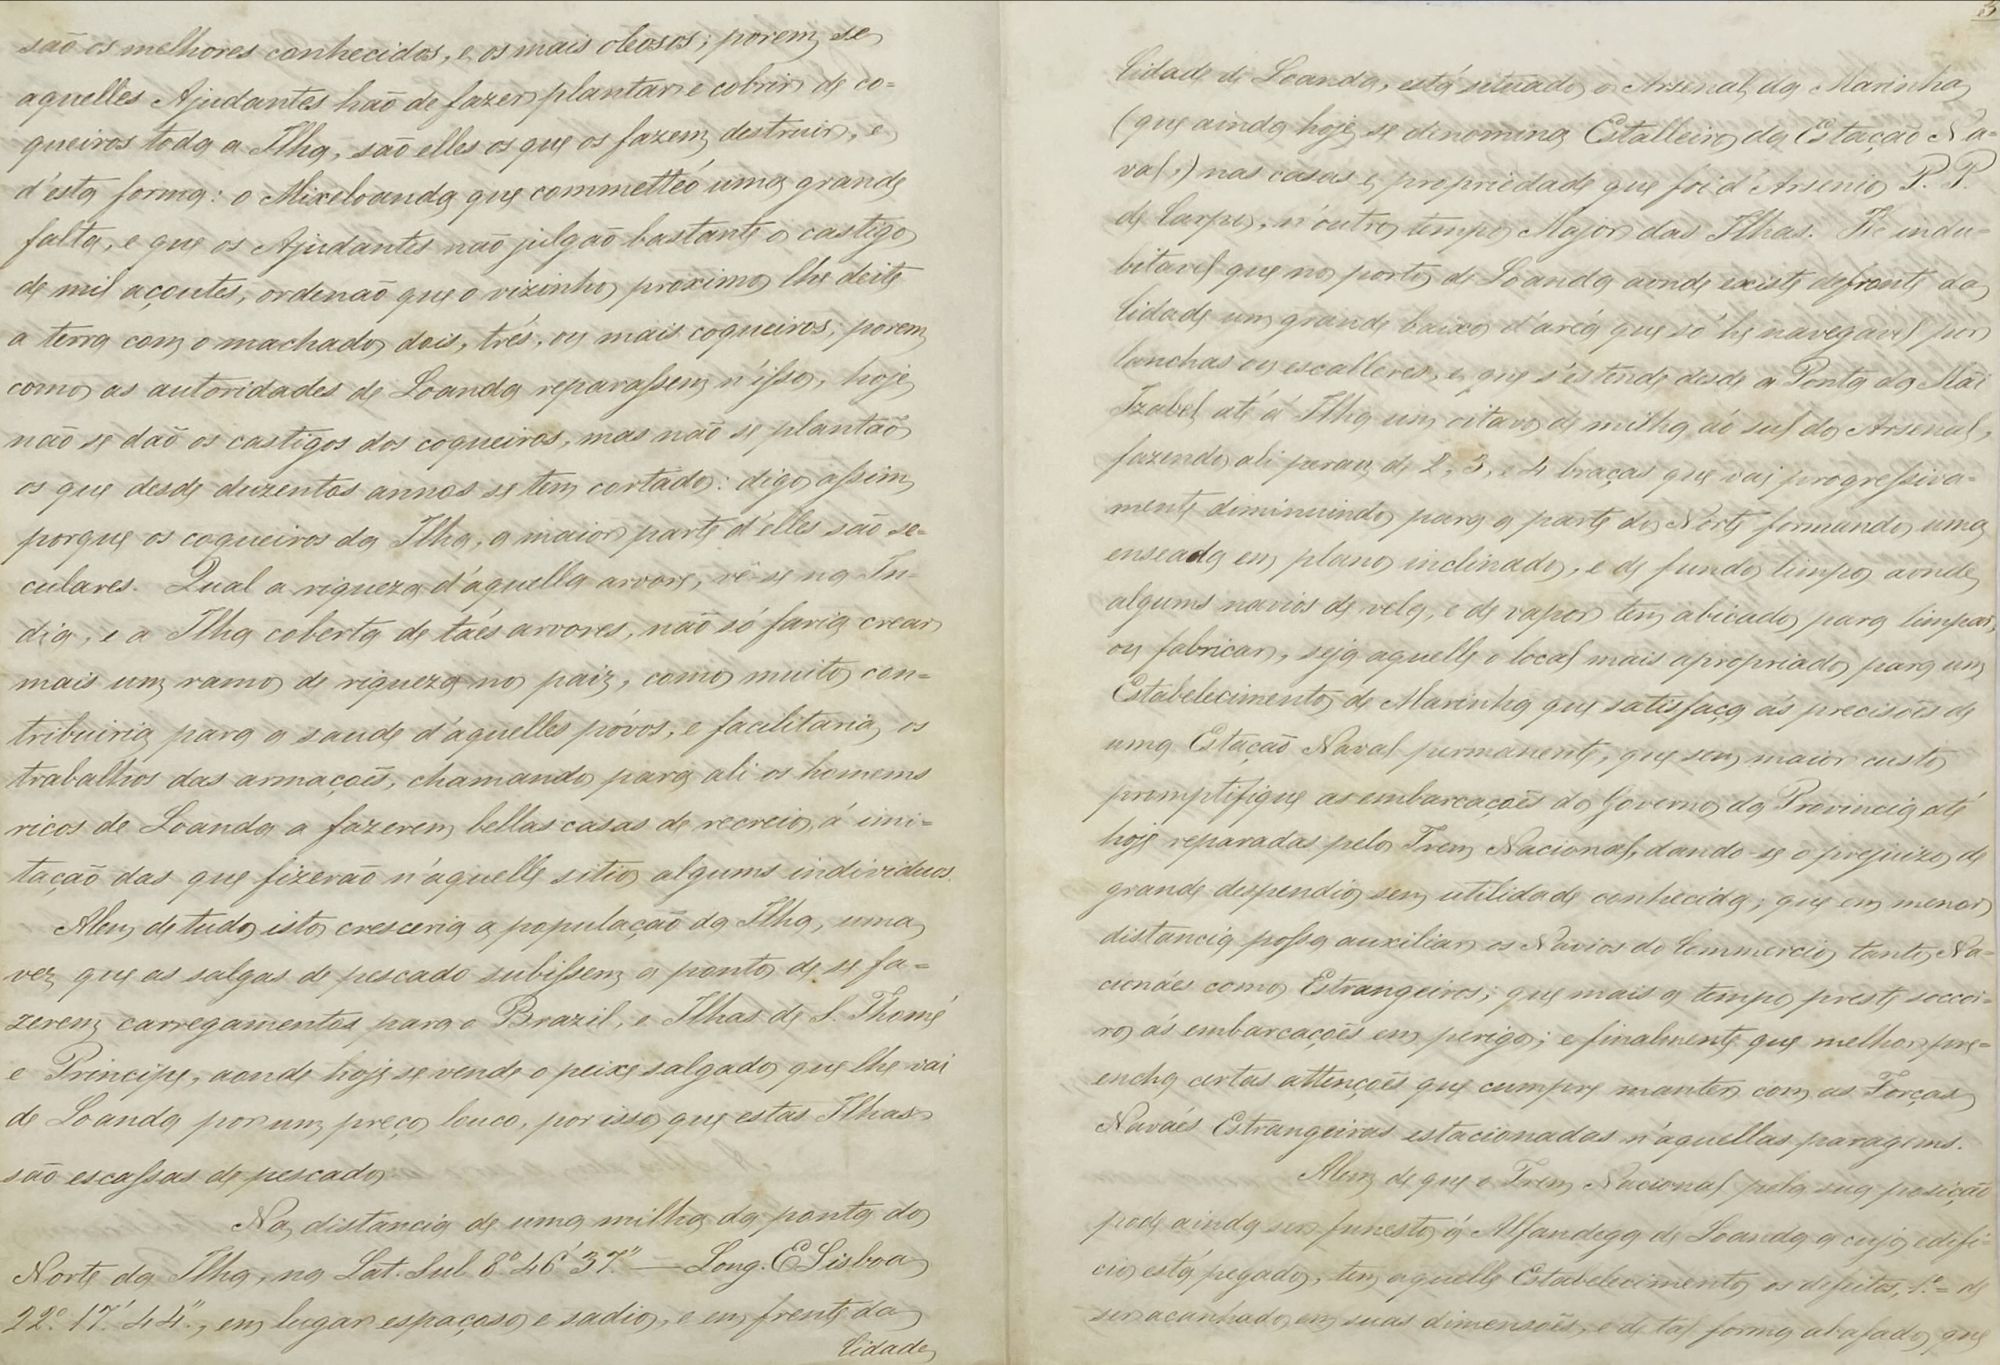 são os melhores conhecidos, e os mais oleosos; porem se
aquelles Ajudantes haõ de fazer plantar e cobrir de co-
queiros toda a Ilha, saõ elles os que os fazem destruir, e
d'esta forma: o Mixeloanda que commetteó uma grande
falta, e que os Ajudantes naõ julgaõ bastante o castigo
de mil açoutes, ordenaõ que o vizinho proximo lhe deite
a terra com o machado dois, trés, ou mais coqueiros; porem
como as autoridades de Loanda reparassem n'isso, hoje
não se daõ os castigos dos coqueiros, mas naõ se plantaõ
os que desde duzentos annos se tem cortado: digo assim
porque os coqueiros da Ilha, a maior parte d'elles são se-
culares. Qual a riqueza d'aquella arvore, vê-se na In-
dia, e a Ilha coberta de táes arvores, não só faria crear
mais um ramo de riqueza no paiz, como muito con-
tribuiria para a saude d'aquelles póvos, e facilitaria os
trabalhos das armaçoẽs, chamando para ali os homems
ricos de Loanda a fazerem bellas casas de recreio, á imi-
tação das que fizeraõ n'aquelle sitio algums individuos.
Alem de tudo isto cresceria a população da Ilha, uma
vez que as salgas de pescado subissem a ponto de se fa-
zerem carregamentos para o Brazil, e Ilhas de S. Thomé
e Principe, aonde hoje se vende o peixe salgado que lhe vai
de Loanda por um preço louco, por isso que estas Ilhas
são escassas de pescado
Na distancia de uma milha da ponta do
Norte da Ilha, na Lat. Sul 8.º 46' 37." — Long. E Lisboa
22.º 17.' 44.", em lugar espaçoso e sadio, e em frente da
Cidade
3
Cidade de Loanda, está situado o Arsenal da Marinha
(que ainda hoje se denomina Estalleiro da Estação Na-
val,) nas casas e propriedade que foi d'Arsenio P. P.
de Carpo, n'outro tempo Major das Ilhas. He indu-
bitavel que no porto de Loanda aonde existe defronte da
Cidade um grande baixo d'aréa que só he navegavel por
lanchas ou escalleres, e que s'estende desde a Ponta da Mãi
Izabel até á Ilha um oitavo de milha áo sul do Arsenal,
fazendo ali parau de 2, 3, e 4 braças que vai progressiva-
mente diminuindo para a parte do Norte formando uma
enseada em plano inclinado, e de fundo limpo aonde
algums navios de vela, e de vapor tem abicado para limpar,
ou fabricar, seja aquelle o local mais apropriado para um
Estabelecimento de Marinha que satisfaça ás precisoẽs de
uma Estação Naval permanente, que sem maior custo
promptifique as embarcaçoẽs do Governo da Provincia até
hoje reparadas pelo Trem Nacional, dando-se o prejuizo de
grande despendio sem utilidade conhecida; que em menor
distancia possa auxiliar os Navios do Commercio, tanto Na-
cionáes como Estrangeiros; que mais a tempo preste soccor-
ro ás embarcaçoẽs em perigo; e finalmente que melhor pre-
encha certas attençoẽs que cumpre manter com as Forças
Naváes Estrangeiras estacionadas n'aquellas paragems.
Alem de que o Trem Nacional pela sua posição
pode ainda ser funesto á Alfandega de Loanda a cujo edifi-
cio está pegado, tem aquelle Estabelecimento os defeitos, 1.º = de
ser acanhado em suas dimensoẽs, e de tal forma abafado, que